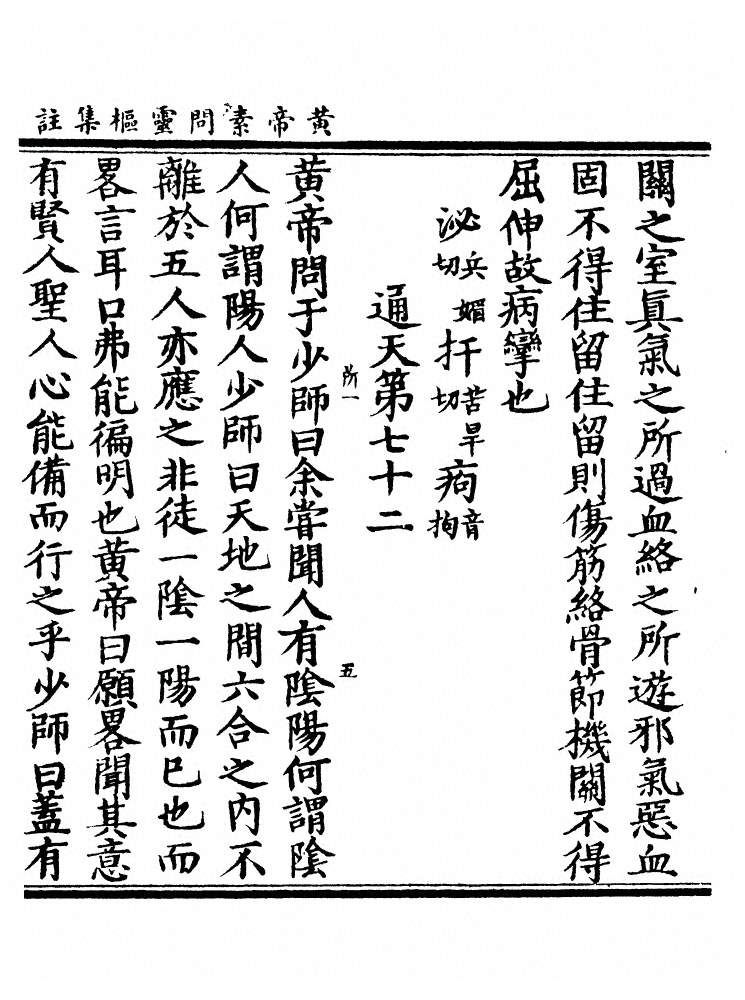 黄帝素問靈樞集註
關之室真氣之所過血絡之所遊邪氣惡血
固不得住留住留則傷筋絡骨節機關不得
屈伸故病攣也
泌兵媚切扞苦旱切痀音拘
通天第七十二
所一
五
黄帝問于少師曰余嘗聞人有陰陽何謂陰
人何謂陽人少師曰天地之間六合之内不
離於五人亦應之非徒一陰一陽而巳也而
畧言耳口弗能徧明也黄帝曰願畧聞其意
有賢人聖人心能備而行之乎少師曰蓋有